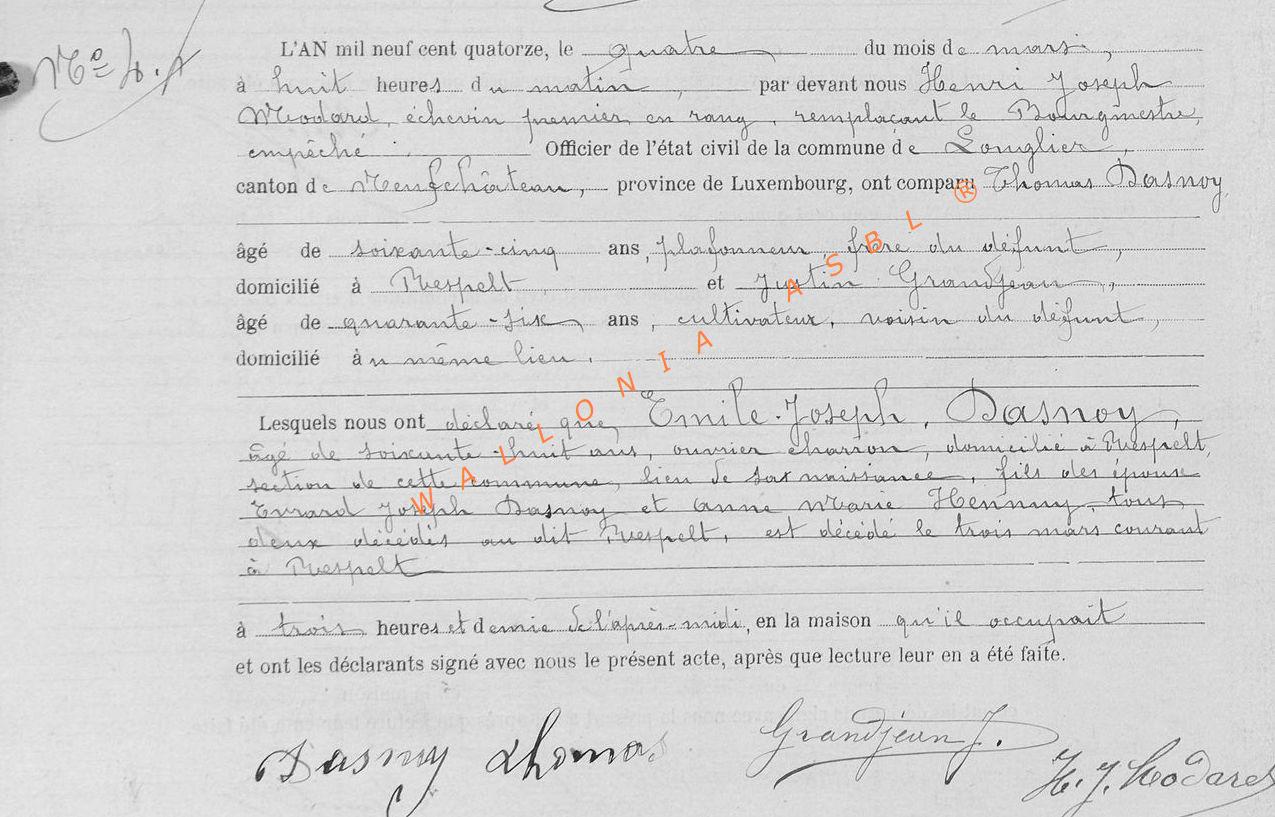 Nº 4.
L'AN mil neuf cent quatorze, le quatre du mois de mars,
à huit heures du matin, par devant nous Henri Joseph
Modard, échevin premier en rang, remplaçant le Bourgmestre,
empêché. Officier de l'état civil de la commune de Longlier,
canton de Neufchâteau, province de Luxembourg, ont comparu Thomas Dasnoy
âgé de soixante-cinq ans, plafonneur, frère du défunt,
domicilié à Respelt, et Justin Grandjean,
âgé de quarante-six ans, cultivateur, voisin du défunt,
domicilié au même lieu.
Lesquels nous ont déclaré que Emile-Joseph, Dasnoy,
âgé de soixante-huit ans, ouvrier charron, domicilié à Respelt,
section de cette commune, lieu de sa naissance, fils des épouse
Evrard Joseph Dasnoy et Anne Marie Henmuy, tous
deux décédés au dit Respelt, est décédé le trois mars courant
à Respelt
à trois heures et demie de l'après-midi, en la maison qu'il occupait
et ont les déclarants signé avec nous le présent acte, après que lecture leur en a été faite.
Dasnoy Thomas Grandjean J. H. J. Modard
WALLONIA ASBL ®